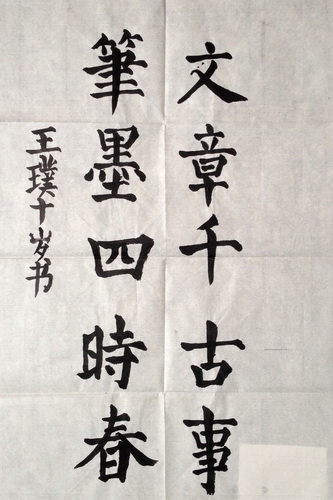 文章千古事
筆墨四時春
王璞千岁书